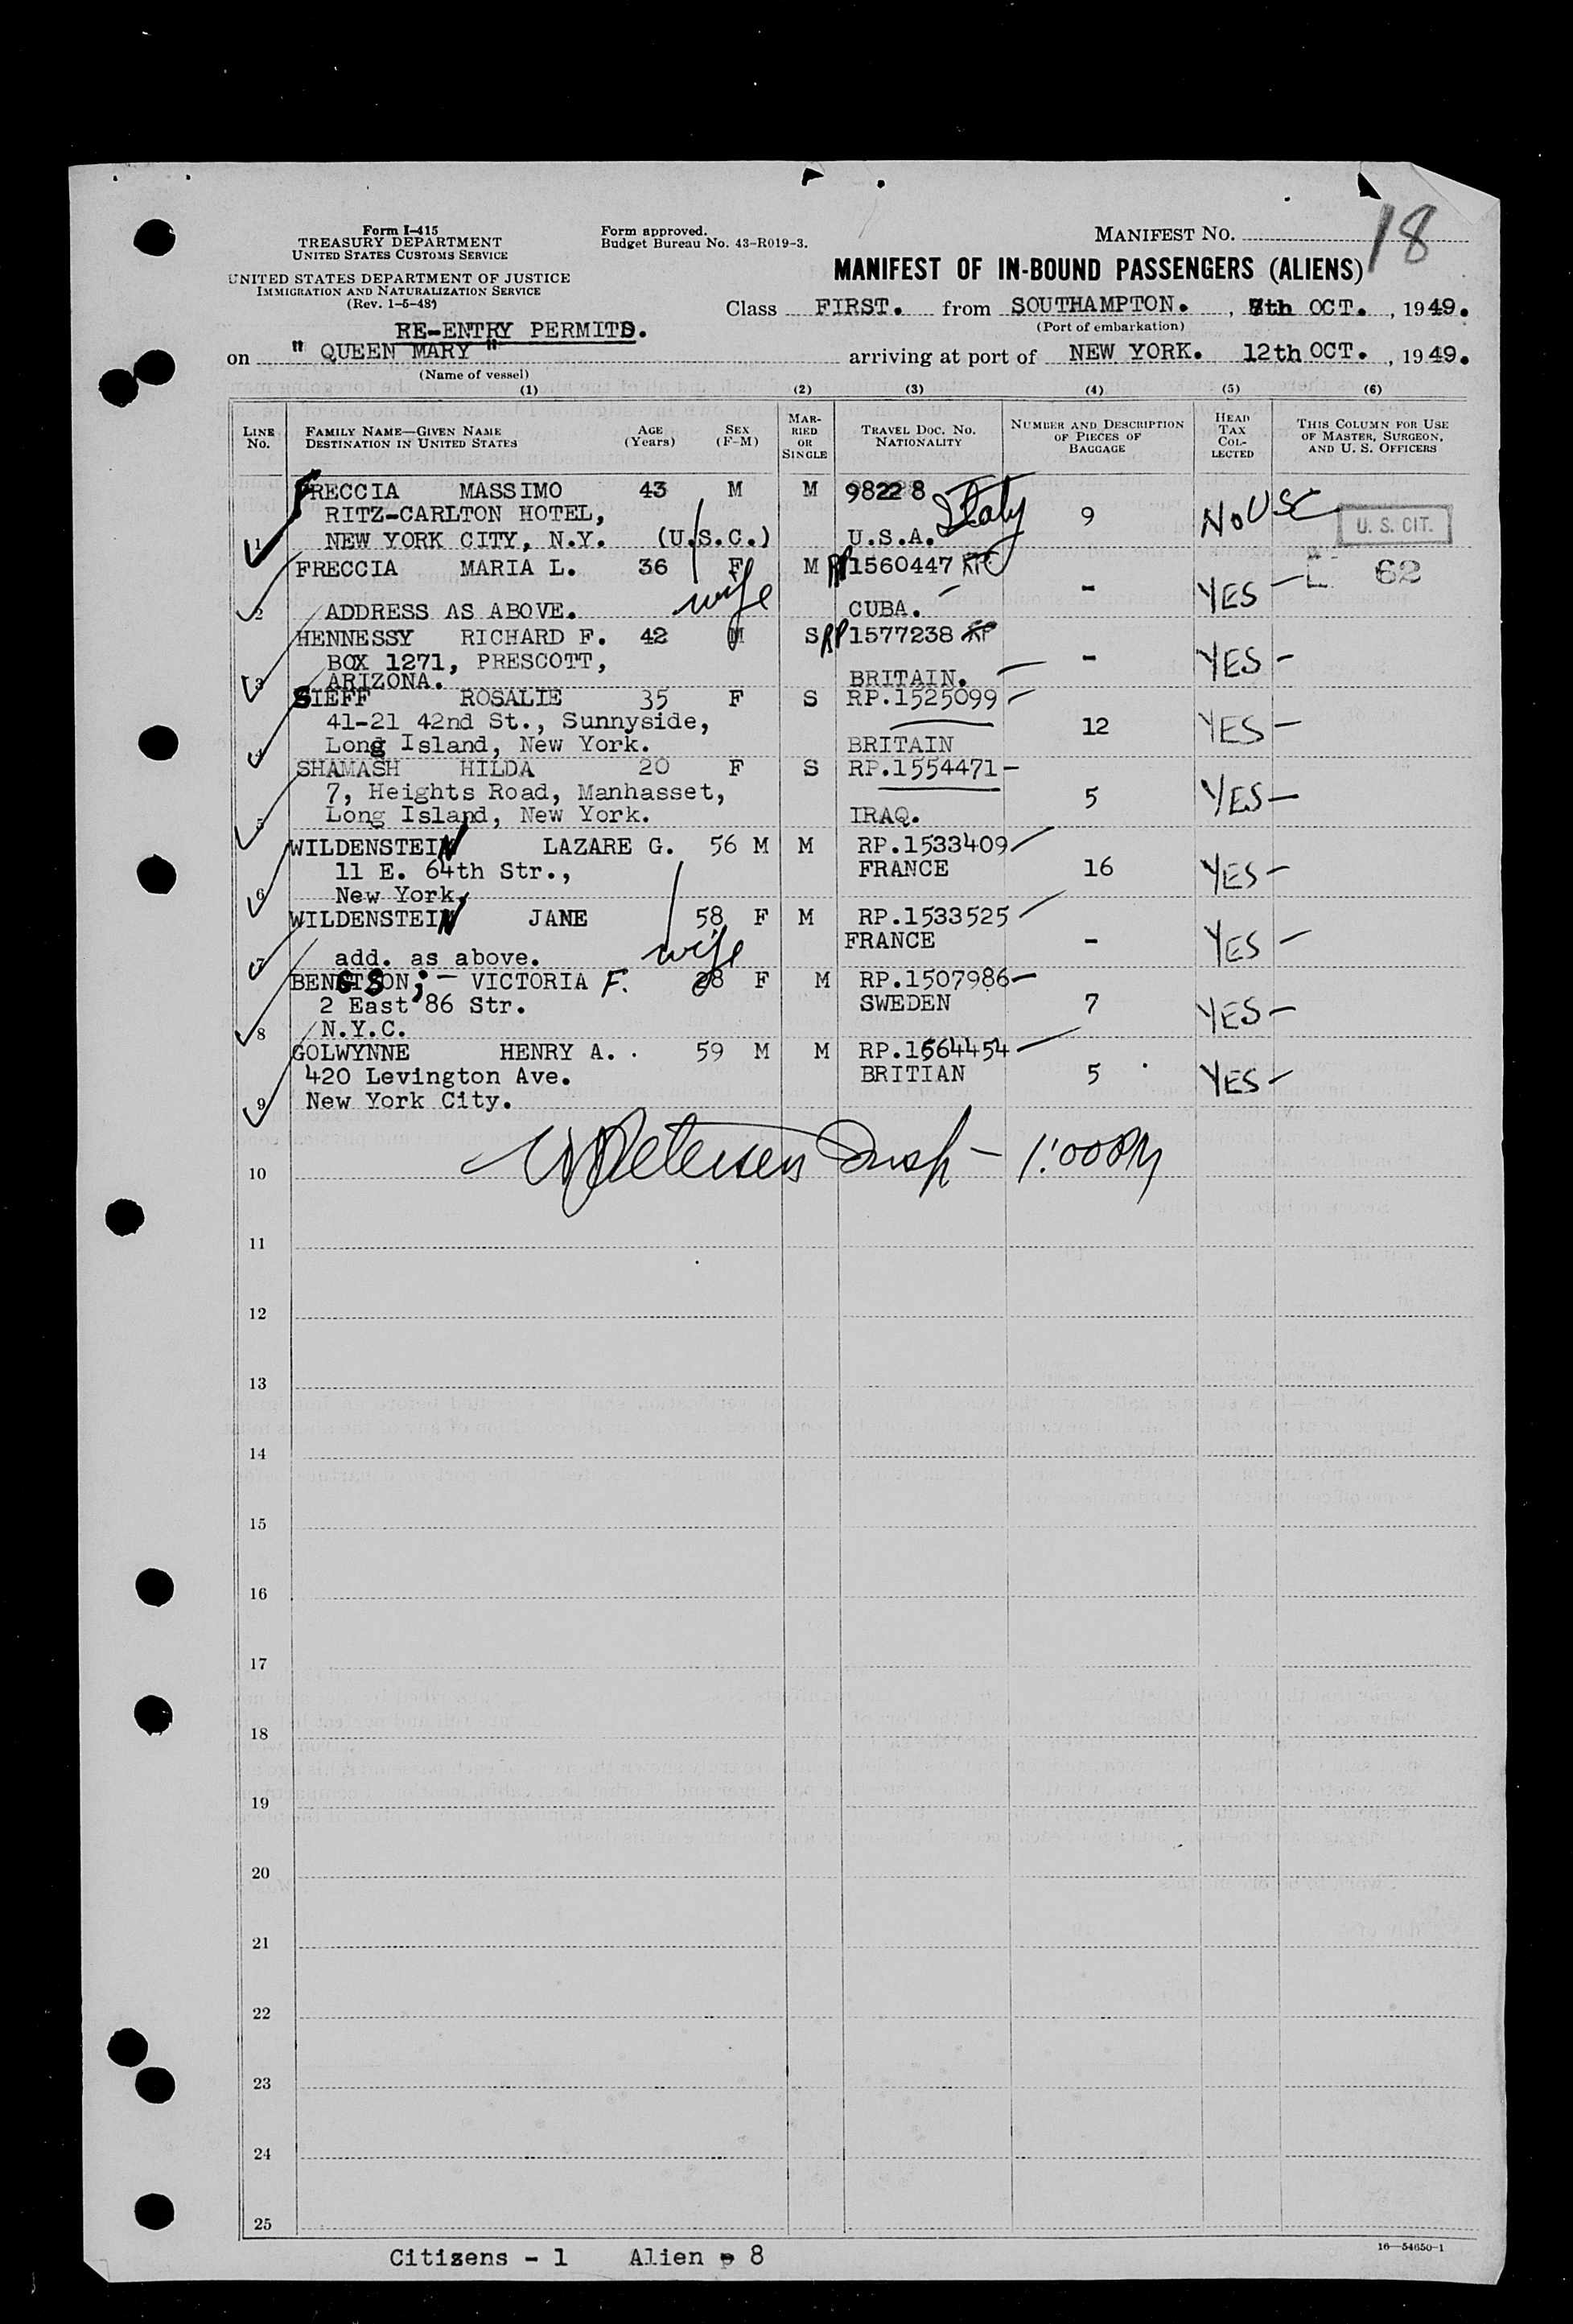 Form I-415
TREASURY DEPARTMENT
UNITED STATES CUSTOMS SERVICE
UNITED STATES DEPARTMENT OF JUSTICE
IMMIGRATION AND NATURALIZATION SERVICE
(Rev. 1-5-48)
Form approved.
Budget Bureau No. 43-R019-3.
MANIFEST NO. 18
MANIFEST OF IN-BOUND PASSENGERS (ALIENS)
Class FIRST. from SOUTHAMPTON. , 7th OCT. , 1949.
(Port of embarkation)
RE-ENTRY PERMITS.
on " QUEEN MARY " arriving at port of NEW YORK. 12th OCT. , 1949.
(Name of vessel)
(1) (2) (3) (4) (5) (6)
LINE No. FAMILY NAME—GIVEN NAME DESTINATION IN UNITED STATES AGE (Years) SEX (F-M) MARRIED OR SINGLE TRAVEL DOC. NO. NATIONALITY NUMBER AND DESCRIPTION OF PIECES OF BAGGAGE HEAD TAX COLLECTED THIS COLUMN FOR USE OF MASTER, SURGEON, AND U. S. OFFICERS
FRECCIA MASSIMO 43 M M 98228 Italy
RITZ-CARLTON HOTEL, 9 No USC U. S. CIT.
1 NEW YORK CITY, N.Y. (U.S.C.) U.S.A.
FRECCIA MARIA L. 36 F M RP 1560447 RP - YES - 62
2 ADDRESS AS ABOVE. wife CUBA. -
HENNESSY RICHARD F. 42 M S RP 1577238 RP
BOX 1271, PRESCOTT, - YES -
3 ARIZONA. BRITAIN. -
SIEFF ROSALIE 35 F S RP.1525099 -
41-21 42nd St., Sunnyside, 12 YES -
4 Long Island, New York. BRITAIN
SHAMASH HILDA 20 F S RP.1554471 -
7, Heights Road, Manhasset, 5 YES -
5 Long Island, New York. IRAQ.
WILDENSTEIN LAZARE G. 56 M M RP.1533409
11 E. 64th Str., FRANCE 16 YES -
6 New York.
WILDENSTEIN JANE 58 F M RP.1533525
FRANCE - YES -
7 add. as above. wife
BENGTSON; - VICTORIA F. 28 F M RP.1507986 -
2 East 86 Str. SWEDEN 7 YES -
8 N.Y.C.
GOLWYNNE HENRY A. . 59 M M RP.1564454
420 Levington Ave. BRITIAN 5 YES -
9 New York City.
Petersen Insp - 1:00 PM
10
11
12
13
14
15
16
17
18
19
20
21
22
23
24
25
Citizens - 1 Alien - 8
16—54650-1